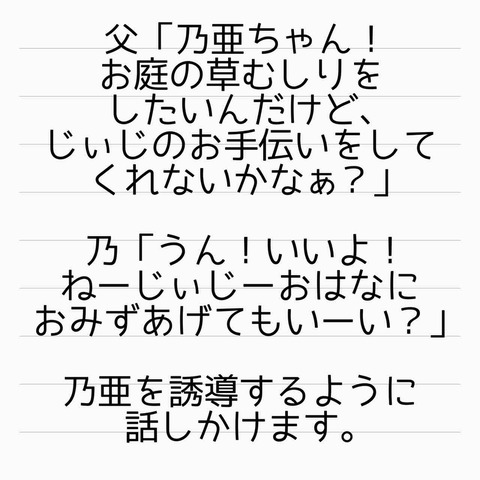 父「乃亜ちゃん！
お庭の草むしりを
したいんだけど、
じぃじのお手伝いをして
くれないかなぁ？」
乃「うん！いいよ！
ねーじぃじーおはなに
おみずあげてもいーい？」
乃亜を誘導するように
話しかけます。